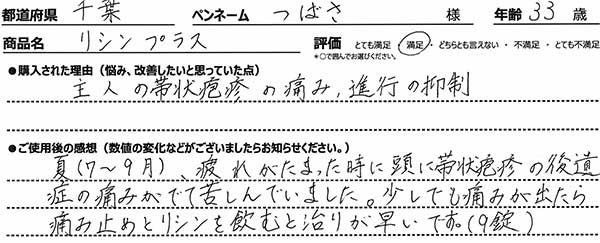 都道府県 千葉 ペンネーム つばさ 様 年齢 33 歳
商品名 リシンプラス 評価 とても満足・満足・どちらとも言えない・不満足・とても不満足
*○で囲んでお選びください。
●購入された理由（悩み、改善したいと思っていた点）
主人の帯状疱疹の痛み,進行の抑制
●ご使用後の感想（数値の変化などがございましたらお知らせください。）
夏(7〜9月)、疲れがたまった時に頭に帯状疱疹の後遺
症の痛みがでて苦しんでいました。少しでも痛みが出たら
痛み止めとリシンを飲むと治りが早いです。(9錠)